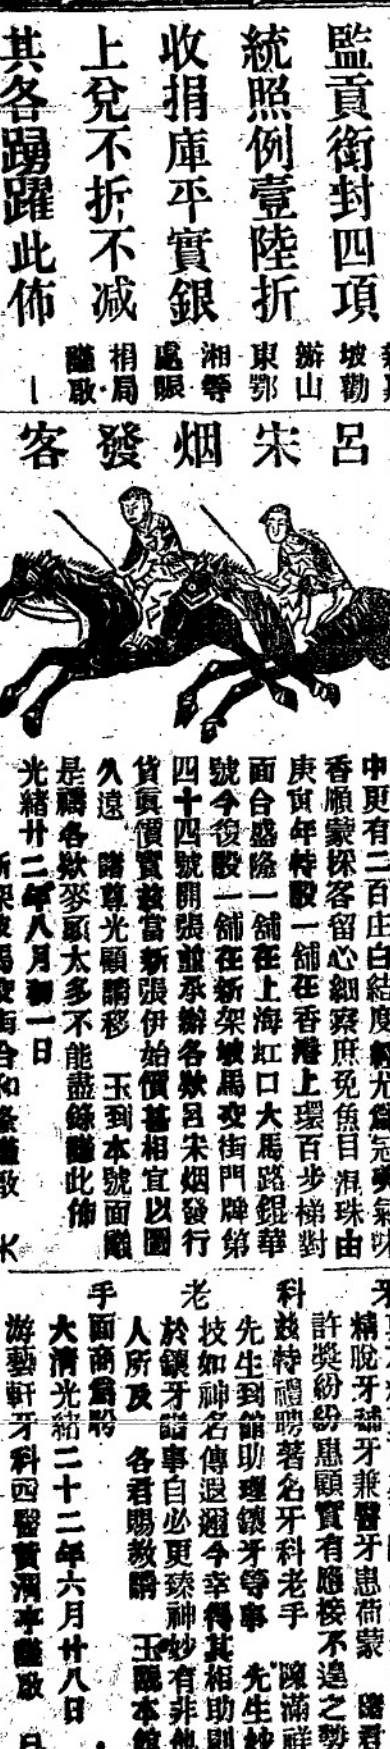 監貢銜封四項
統照例壹陸折
收捐庫平實銀
上兌不折不減
其各踴躍此佈
坡勸
辦山
東鄂
湘等
處賑
捐局
謹啟
呂宋烟發客
中更有二百庄白結度
香願蒙採客留心細察庶免魚目混珠由
庚寅年特設一舖在香港上環百步梯對
面合盛隆一舖在上海虹口大馬路錕華
號今復設一舖在新架坡馬交街門牌第
四十四號開張並承辦各欵呂宋烟發行
貨眞價實茲當新張伊始價甚相宜以圖
久遠 諸尊光顧請移 玉到本號面
是禱各欵麥頭太多不能盡錄謹此佈
光緒廿二年八月初一日
新架坡馬交街合和隆謹啟
精脫牙補牙兼醫牙患荷蒙 諸君
許獎紛紛惠顧實有應接不遑之勢
科茲特禮聘著名牙科老手 陳滿祥
先生到館助理鑲牙等事 先生妙
老技如神名傳遐邇今幸得其相助則
於鑲牙諸事自必更臻神妙有非他
人所及 各君賜教請 玉本館
手面商爲盼
大清光緒二十二年六月廿八日
游藝軒牙科西醫黃謹啟